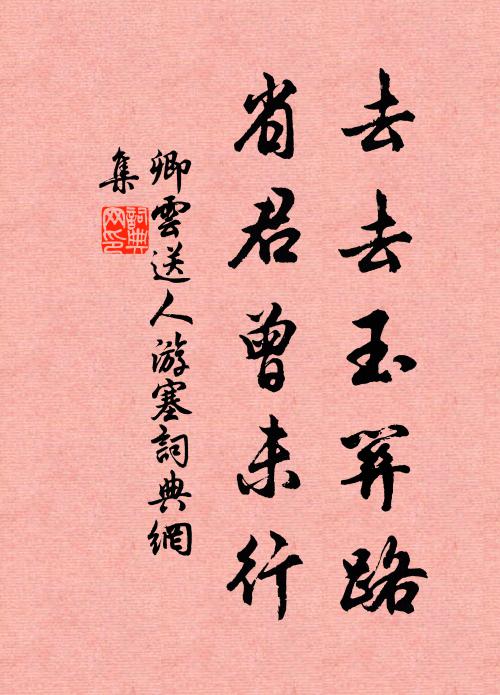 去去玉关路
省君曾未行
卿雲送人游塞詞典網
集
詞典
网印